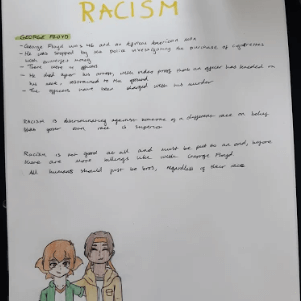 RACISM
GEORGE FLOYD
- George Floyd was 46 and an African American man
- He was stopped by the police investigating the purchase of cigarettes
with
- There were officers
- He died after his arrest, with video proof that an officer has kneeled on
his neck, restrained to the ground
- The officers have been charged with his murder
Racism is discriminating against someone of a different race or being
your own race is superior
Racism is not good at all and must be put to an end, before
there are more killings like with George Floyd.
All humans should just be , regardless of their race